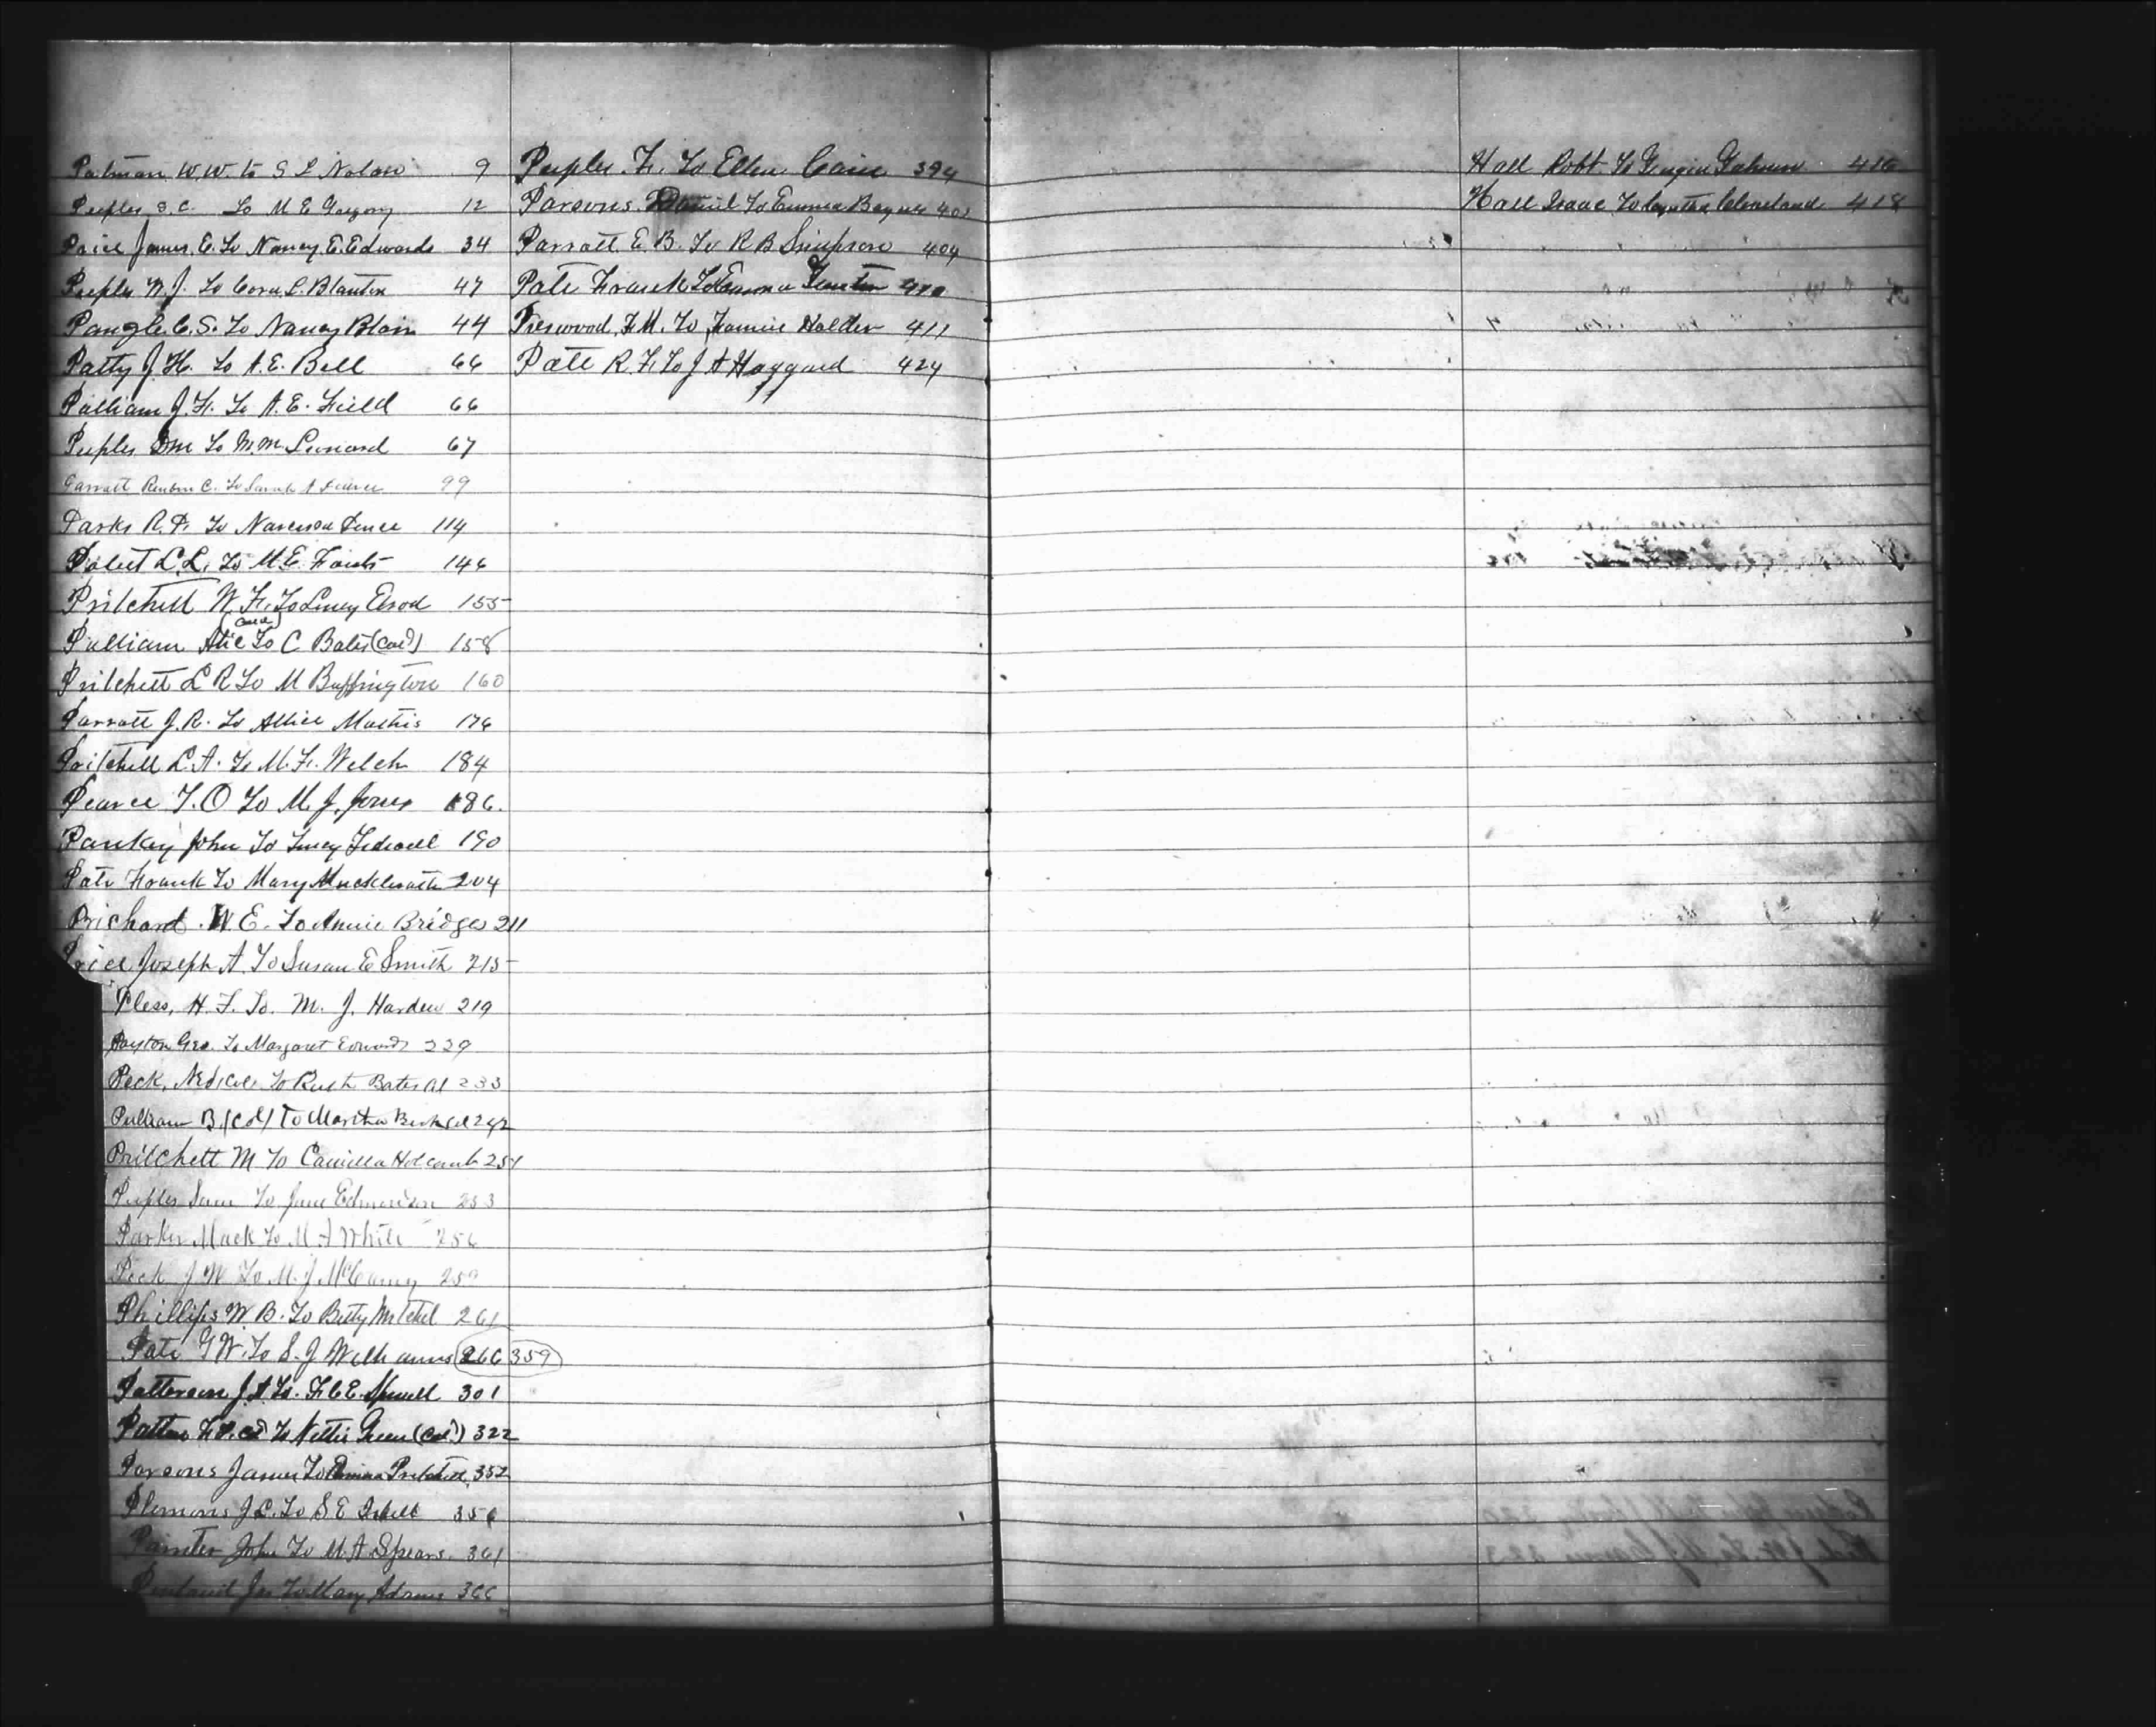 Patman W. W. to S L Nolan 9
Peeples S. C. To M E Gregory 12
Price James. E. To Nancy E. Edwards 34
Peeples W. J. To Cora L. Blanton 47
Pangle C. S. To Nancy Blair 44
Patty J. H. To A. E. Bell 66
Pulliam J. F. To A. E. Field 66
Peeples To M. M. Leonard 67
Parratt Reuben C. To Sarah A 99
Parks R. P. To Narcissa Pence 114
L. L. To M. E. 146
Pritchett W. F. To Lucy Elrod 155
Pulliam To C Bates (Cold) 158
Pritchett L R To M Buffington 160
Parratt J. R. To Allice Mathis 176
Pritchett L. A. To M. F. Welch 184
Pearce T. O To M. J. Jones 186.
Pankey John To Lucy Tidwell 190
Pate Frank To Mary 204
Prichard. W. E. To Annie Bridges 211
Price Joseph A. To Susan E Smith 215
Pless, H. F. To. M. J. Harden 219
Payton Geo. To Margaret Edwards 229
Peck, To Ruth Bates 233
Pulliam B. (Cold) To Martha 242
Pritchett M To Camilla Holcomb 251
Peeples Sam To Jane Edmondson 253
Parker Mack To M A White 256
Peck J W To M. J. McCamy 259
Phillips W B. To Betty Mitchel 261
Pate G W. To S. J Williams 266 359
Patterson J. A. To. F. C E. 301
Patton To Nettie Green (Cold) 322
Parsons James To Pritchett 352
Plemons J. C. To S E Isbell 356
Painter John To M. A Spears. 361
To Mary Adams 366
Peeples. F. To Ellen Cain 394
Parsons. Daniel To Emma
Parratt E. B. To R B Simpson 404
Pate Frank To Emma
F. M. To Fannie Holder 411
Pate R. F. To J A Haggard 424
Hall Robt. To 416
Hall Isaac To Cleveland 418